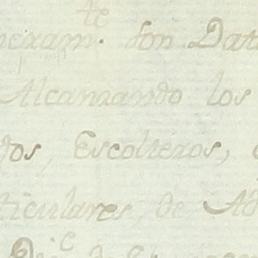 te
neram. son Dat
Alcanzando los
dos, Escolteros,
ticulares, de Ad